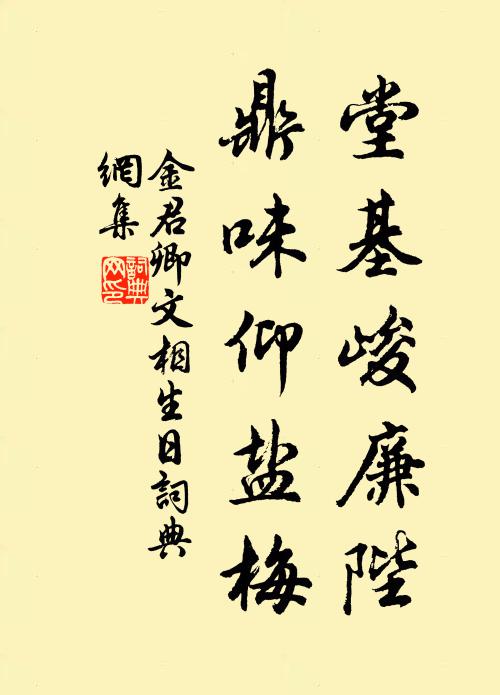 堂基峻廉陛
鼎味仰盐梅
金君卿文相生日詞典
網集
詞典網印